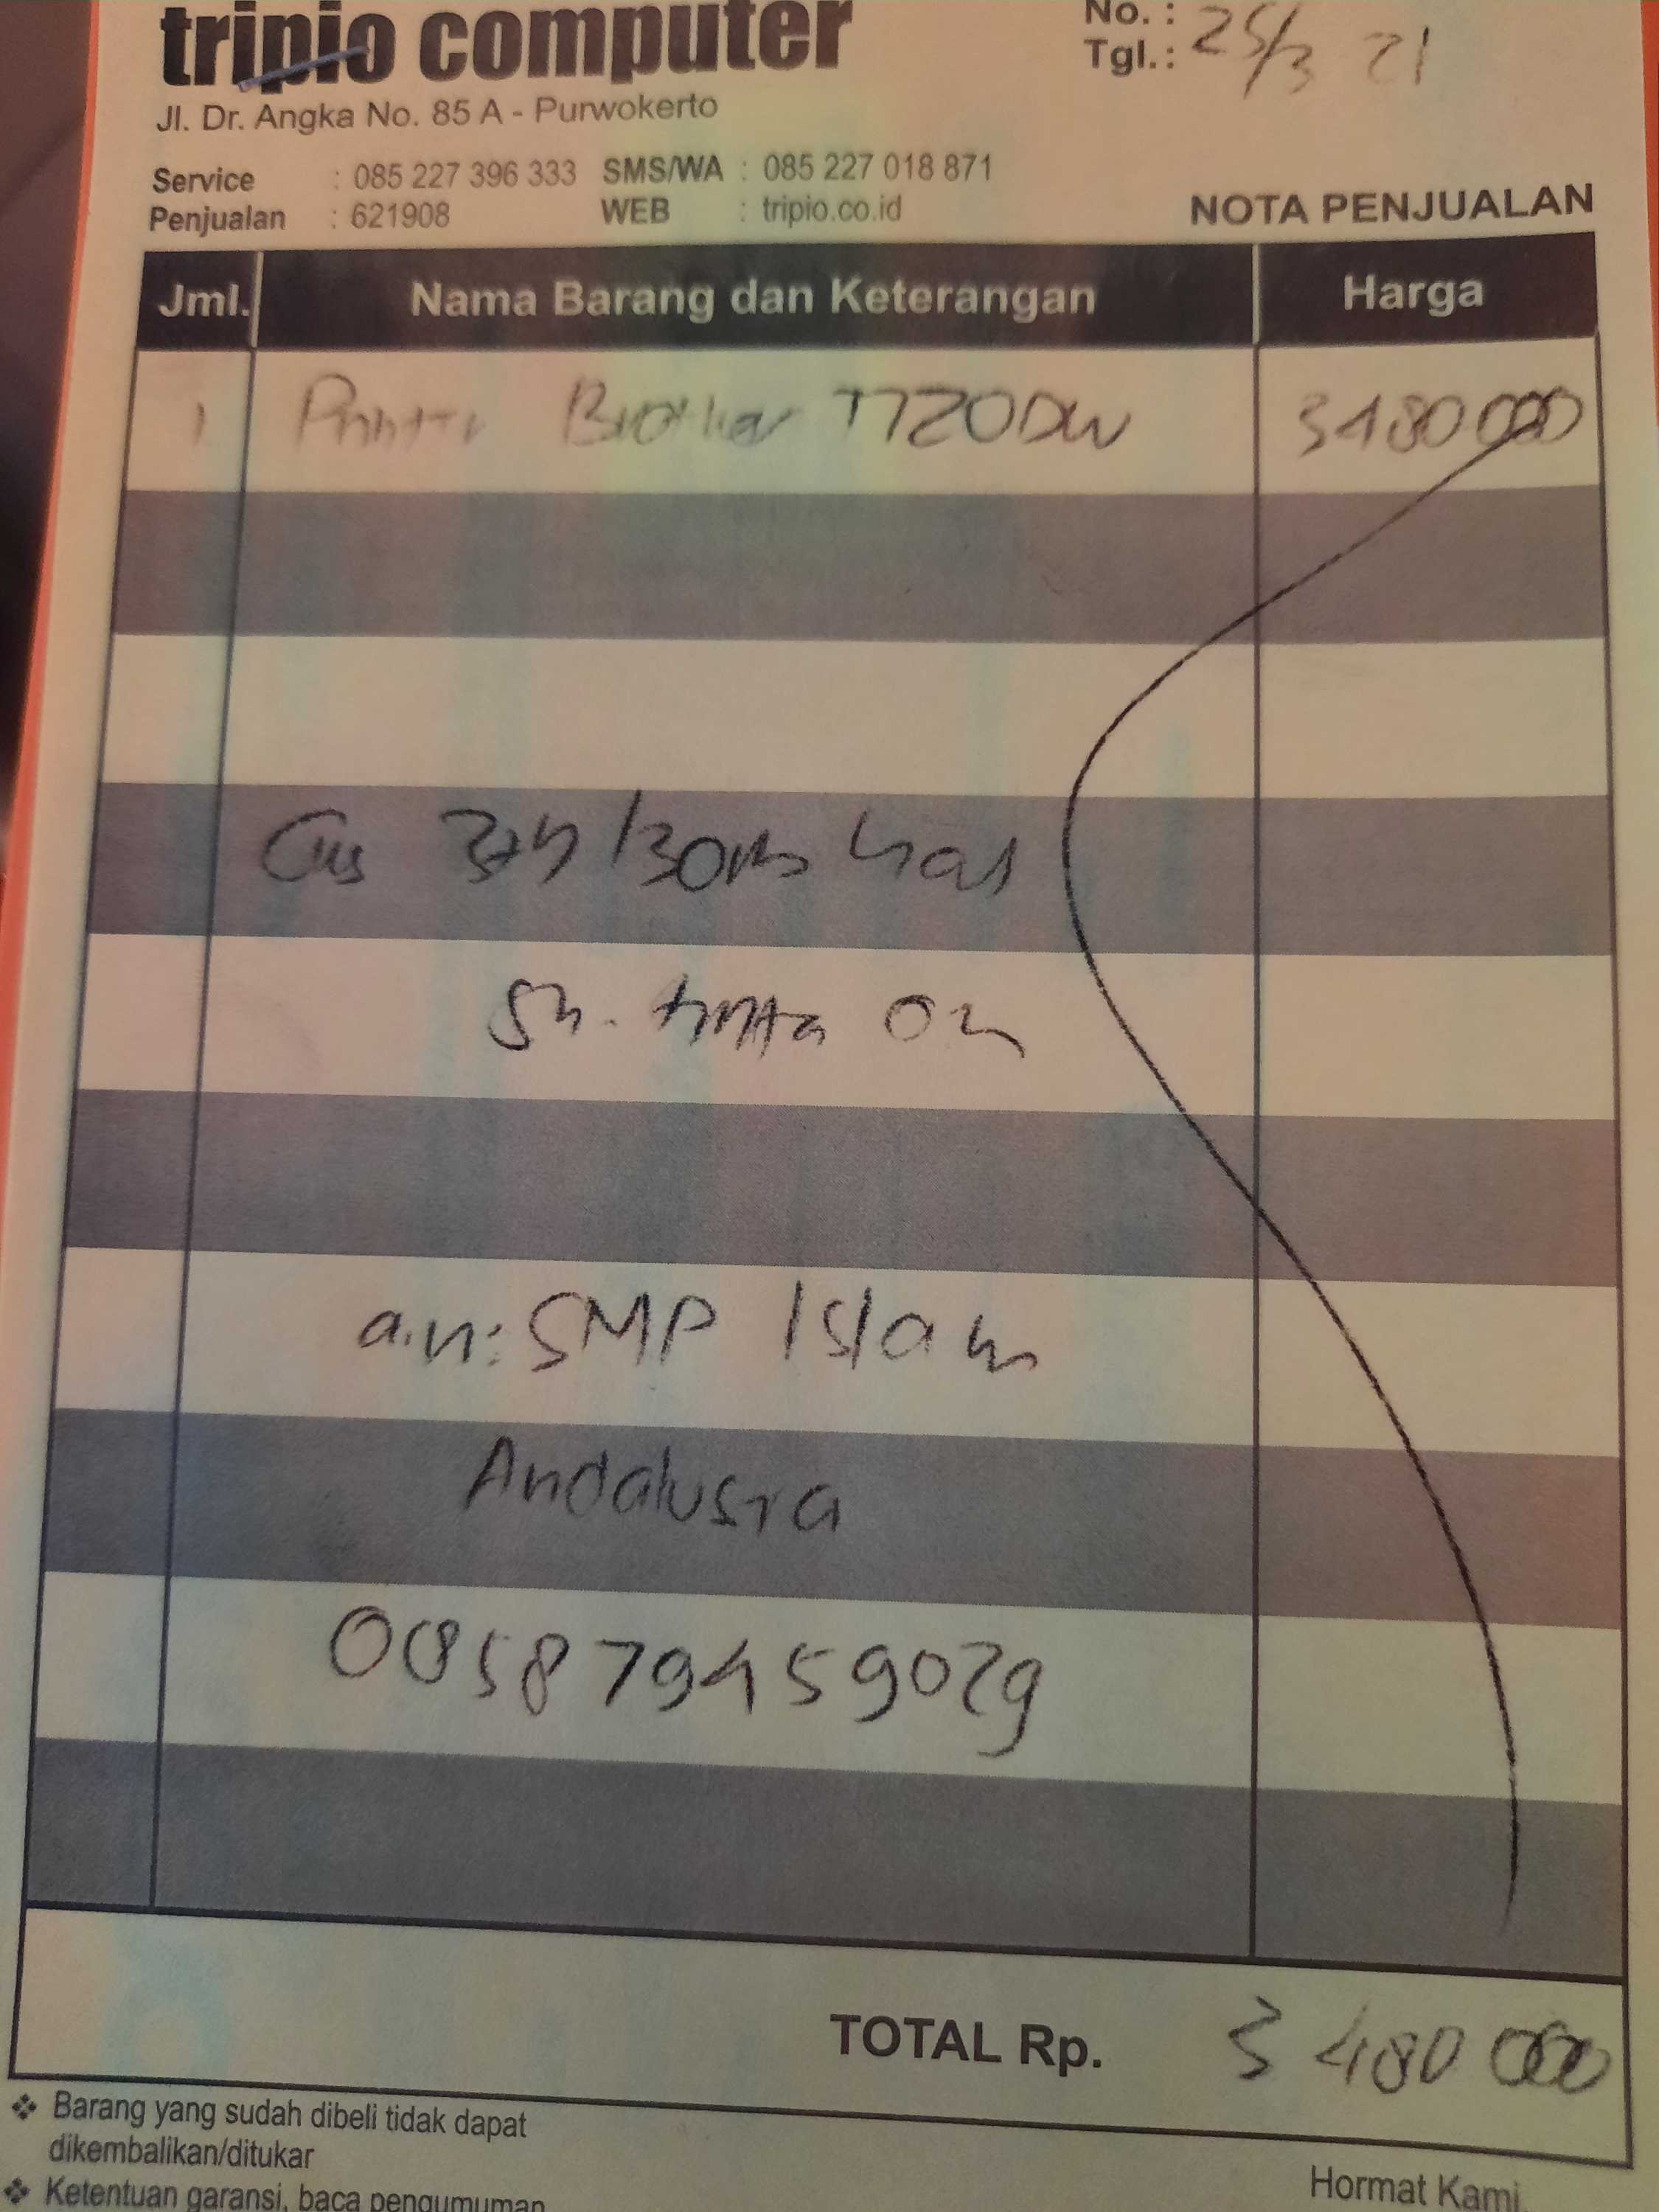 tripio computer
No. :
Tgl. : 25/3 21
Jl. Dr. Angka No. 85 A - Purwokerto
Service : 085 227 396 333 SMS/WA : 085 227 018 871
Penjualan : 621908 WEB : tripio.co.id
NOTA PENJUALAN
Jml. Nama Barang dan Keterangan Harga
1 Printer Brother T720DW 3480000
Gs 3th/30rb hal
Sn. tinta On
a.n: SMP Islam
Andalusia
085879459029
TOTAL Rp. 3 480 000
❖ Barang yang sudah dibeli tidak dapat
dikembalikan/ditukar
❖ Ketentuan garansi, baca pengumuman
Hormat Kami